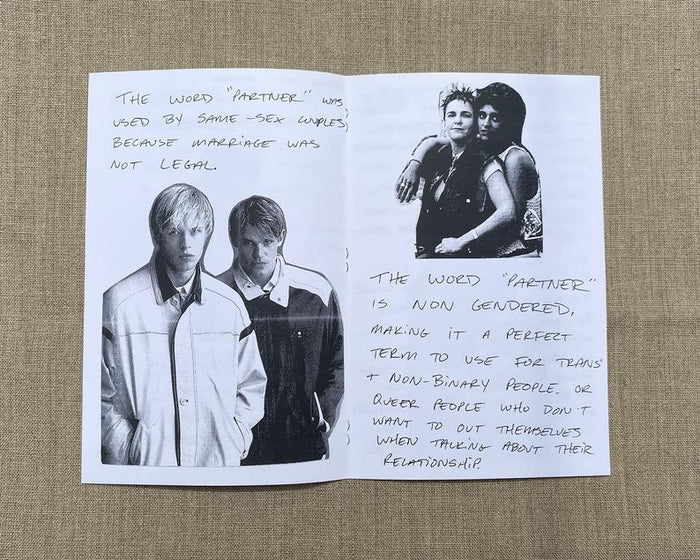 THE WORD "PARTNER" WAS
USED BY SAME-SEX COUPLES
BECAUSE MARRIAGE WAS
NOT LEGAL.
THE WORD "PARTNER"
IS NON GENDERED,
MAKING IT A PERFECT
TERM TO USE FOR TRANS
+ NON-BINARY PEOPLE. OR
QUEER PEOPLE WHO DON'T
WANT TO OUT THEMSELVES
WHEN TALKING ABOUT THEIR
RELATIONSHIP.